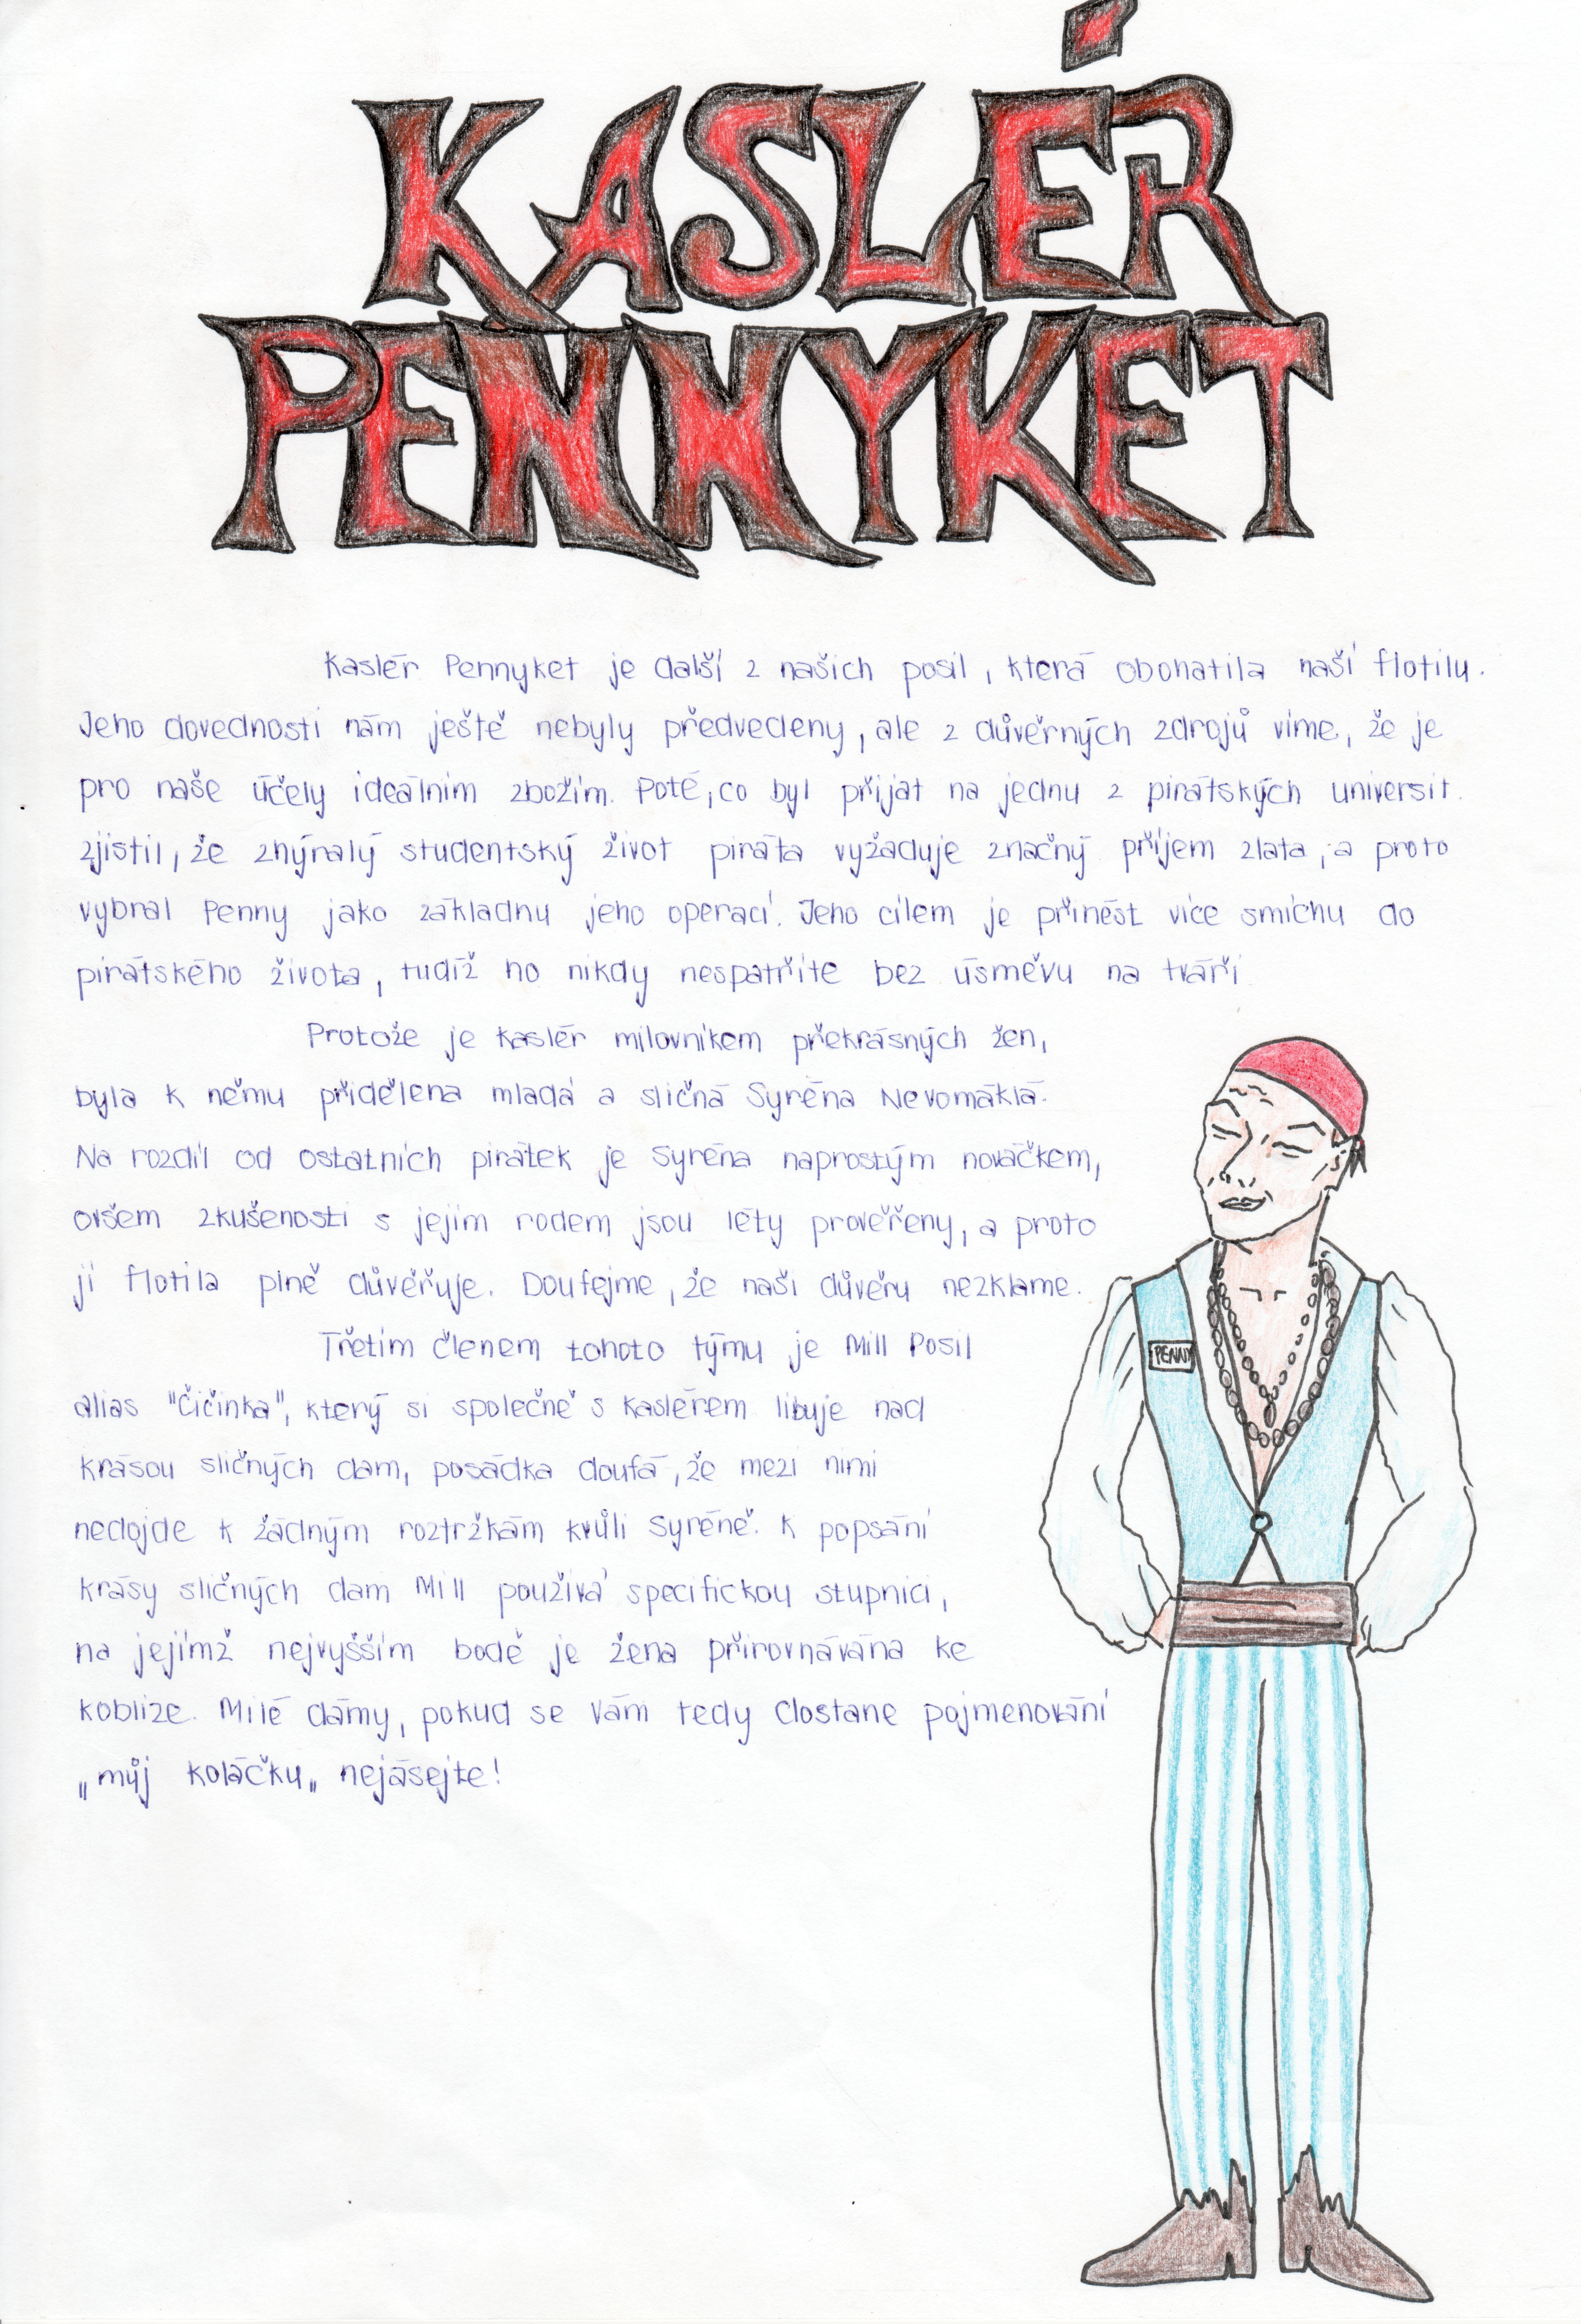 KASLÉR
PENNYKET
Kaslér Pennyket je další z našich posil, která obohatila naší flotilu.
Jeho dovednosti nám ještě nebyly předvedeny, ale z důvěrných zdrojů víme, že je
pro naše účely ideálním zbožím. Poté, co byl přijat na jednu z pirátských universit.
zjistil, že zhýralý studentský život piráta vyžaduje značný příjem zlata, a proto
vybral Penny jako základnu jeho operací. Jeho cílem je přinést více smíchu do
pirátského života, tudíž ho nikdy nespatříte bez úsměvu na tváři
Protože je Kaslér milovníkem překrásných žen,
byla k němu přidělena mladá a sličná Syréna Nevomáklá.
Na rozdíl od ostatních pirátek je Syréna naprostým nováčkem,
ovšem zkušenosti s jejím rodem jsou léty prověřeny, a proto
jí flotila plně důvěřuje. Doufejme, že naši důvěru nezklame.
Třetím členem tohoto týmu je Mill Posil
alias "Čičinka", který si společně s Kaslérem libuje nad
krásou sličných dam, posádka doufá, že mezi nimi
nedojde k žádným roztržkám kvůli Syréně. K popsání
krásy sličných dam Mill používá specifickou stupnici,
na jejímž nejvyšším bodě je žena přirovnávána ke
koblize. Milé dámy, pokud se Vám tedy dostane pojmenování
„můj koláčku„ nejásejte!
PENNY